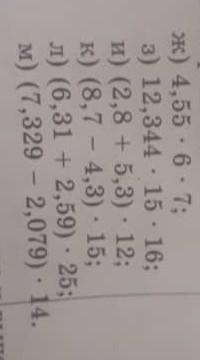 ж) 4,55 · 6 · 7;
з) 12,344 · 15 · 16;
и) (2,8 + 5,3) · 12;
к) (8,7 − 4,3) · 15;
л) (6,31 + 2,59) · 25;
м) (7,329 − 2,079) · 14.